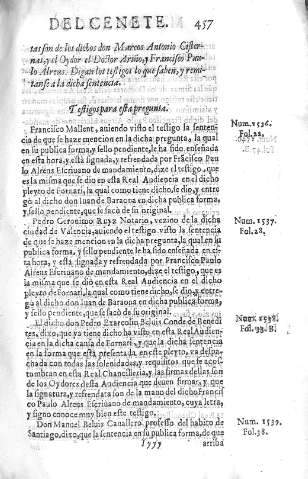 DEL CENETE. 457
tarson de los dichos don Marcos Antonio Cister-
nas, y el Oydor el Doctor Arnio, y Francisco Pau-
lo Alreus. Digan los testigos lo que saben, y remi-
tanse a la dicha sentencia.
Testigos para esta pregunta.
Francisco Mallent, auiendo visto el testigo la senten-
cia de que se haze mencion en la dicha pregunta, la qual
en su publica forma, y sello pendiente, le ha sido enseñada
en esta hora, y está signada, y refrendada por Frãcisco Pau
lo Alreus Escriuano de mandamiento, dize el testigo, que
es la misma que se dio en esta Real Audiencia en el dicho
pleyto de Fornari, la qual como tiene dicho, se dio, y entre
gò al dicho don Iuan de Baraona en dicha publica forma,
y sello pendiente, que se sacò de su original.
Num. 1536.
Fol. 22.
Pedro Geronimo Ruyz Notario, vezino de la dicha
ciudad de Valencia, auiendo el testigo visto la sentencia
de que se haze mencion en la dicha pregunta, la qual en su
publica forma, y sello pendiente le ha sido enseñada en es-
ta hora, y està signada y refrendada por Francisco Paulo
Alreus Escriuano de mandamiento, dize el testigo, que es
la misma que se dió en esta Real Audiencia en el dicho
pleyto de Fornari, la qual como tiene dicho, se dio, y entre-
gó al dicho don Iuan de Baraona en dicha publica forma,
y sello pendiente, que se sacò de su original.
Num. 1537.
Fol. 28,
El dicho don Pedro Exarcolin Beluis Conde de Benedi
tes, dixo, que ya tiene dicho ha visto en esta Real Audien-
cia en la dicha causa de Fornari, y que la dicha sentencia
en la forma que està presentada en este pleyto, va despa-
chada con todas las solenidades, y requisitos que se acos-
tumbran en esta Real Chancilleria, y las firmas dellas son
de los Oydores desta Audiencia que deuen firmar, y que
la signatura, y refrendata son de la mano del dicho Francis
co Paulo Alreus Escriuano de mandamiento, cuya letra, y
signo conoce muy bien este testigo.
Num. 1538.
Fol. 33. B.
Don Manuel Beluis Cauallero, professo del habito de
Santiago, dixo, que la sentencia en su publica forma, de que
Num. 1539.
Fol. 38.
Yyyy arriba